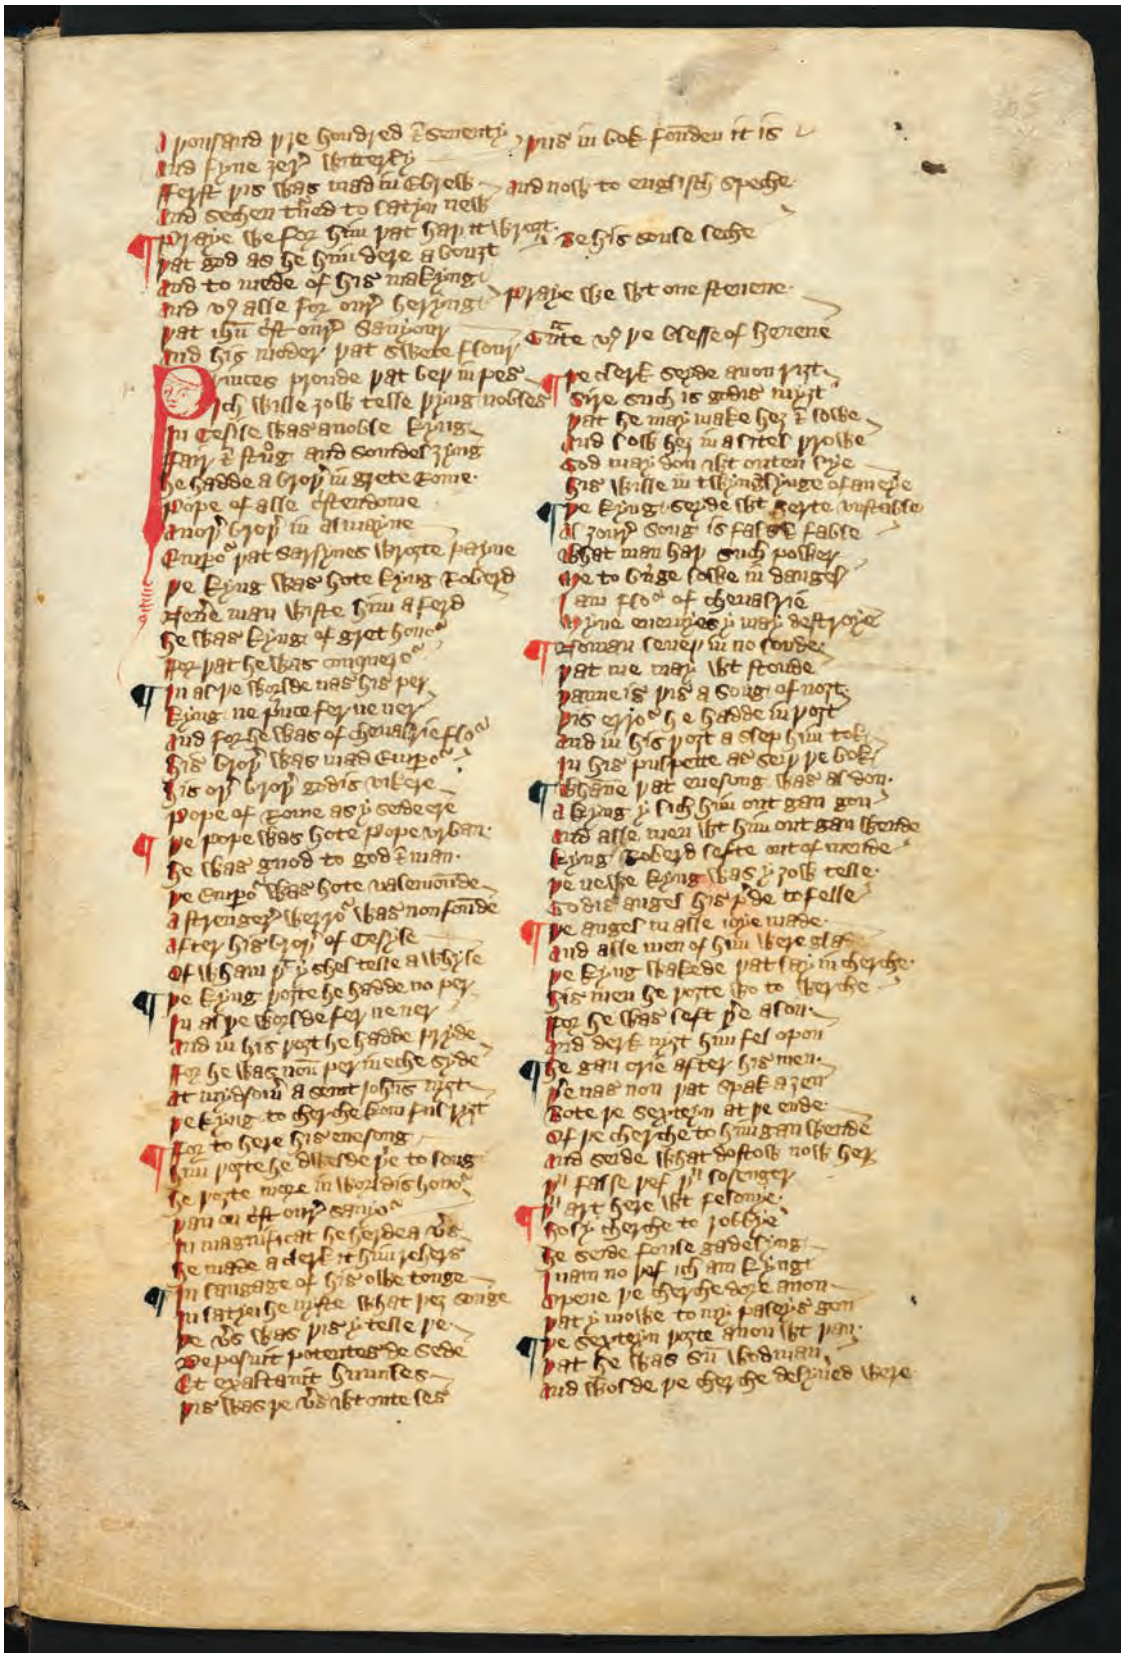 A þousand þre hondred & seuenty
And fyue ȝer witterly
þus in bok fonden it is
Ferst þis was mad in Ebrew
And sethen tned to latyn new
And now to englisch speche
Praye we for him þat haþ it wroȝt
þat god as he him dere a bouȝt
Be his soule leche
And to mede of his makyng
And vs alle for our heryng
Praye we wt one steuene
þat ihu cst our sauyour
And his moder þat swete flour
Gnte vs þe blesse of heuene
Princes proude þat beþ in pres
Ich wille ȝow telle þyng nobles
In Cesile was a noble kyng
Fair & strog and somdel ȝyng
He hadde a broþ in grete Rome
Pope of alle cstendome
Anoþ broþ in almayne
Empo þat sarsynes wroȝte payne
þe kyng was hote kyng Roberd
Neue man wiste him aferd
he was kyng of gret hono
For þat he was conquero
In al þe worlde nas his per
kyng ne pnce fer ne ner
And for he was of cheualrie flo
his broþ was mad Empo
his oþ broþ godis vikere
Pope of Rome as y seide ere
þe pope was hote pope vrban
he was guod to god & man
þe Empo was hote valemounde
A strenger werro was non founde
After his broþ of Cesyle
Of wham þt y shel telle a whyle
þe kyng þoȝte he hadde no per
In al þe worlde fer ne ner
And in his þoȝt he hadde pryde
For he was non per in eche syde
At mydsom a seint johis nyȝt
þe kyng to cherche kom ful ryȝt
For to here his euesong
him þoȝte he dwelde þe to long
he þoȝte more in worldis hono
þan on cst our sauyo
In magnificat he herde a vs
he made a clerk it him rehers
In langage of his owe tonge
In latyn he nyste what þeȝ songe
þe vs was þis y telle þe
Deposuit potentes de sede
Et exaltauit humiles
þis was þe vs wt oute les
þe clerk seyde anon riȝt
Sire such is godis myȝt
þat he may make heȝ & lowe
And low heȝ in a litel þrowe
God may don wt outen lye
his wille in twynglynge of an eye
þe kyng seyde wt herte vnstable
Al ȝour song is fals & fable
What man haþ such power
Me to bnge lowe in danger
I am flo of cheualrie
Myne enemyes y may destroye
No man leueþ in no londe
þat me may wt stonde
þanne is þis a song of noȝt
þis erro he hadde in þoȝt
And in his þoȝt a slep him tok
In his pulpette as seiþ þe bok
Whanne þat euesong was al don
A kyng y lich him out gan gon
And alle men wt him out gan wende
kyng Roberd lefte out of mende
þe newe kyng was y ȝow telle
Godis angel his pde to felle
þe angel in alle ioye made
And alle men of him were glade
þe kyng wakede þat lay in cherche
his men he þoȝte wo to werche
For he was left þe alon
And derk nyȝt him fel opon
he gan crie after his men
þe nas non þat spak aȝen
Bote þe sexteyn at þe ende
Of þe cherche to him gan wende
And seide what dostow now her
þu false þef þu losenger
þu art here wt felonye
holy cherche to robbye
he seide foule gadelyng
I nam no þef ich am kyng
Opene þe cherche dore anon
þat y mowe to my paleys gon
þe sexteyn þoȝte anon wt þan
þat he was su wod man
And wolde þe cherche delyued were